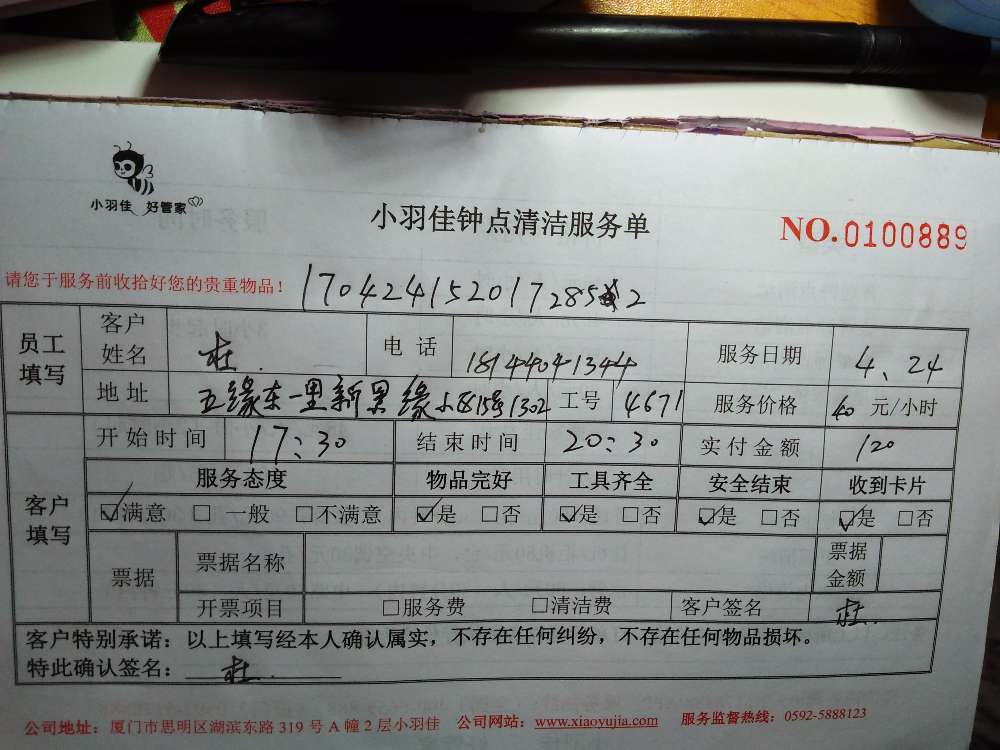 小羽佳 好管家
小羽佳钟点清洁服务单
NO.0100889
请您于服务前收拾好您的贵重物品!
员工填写 客户姓名 杜. 电话 18144041344 服务日期 4、24
地址 五缘东一里新景缘小区15号1302 工号 4671 服务价格 40 元/小时
客户填写 开始时间 17:30 结束时间 20:30 实付金额 120
服务态度 物品完好 工具齐全 安全结束 收到卡片
☑满意 □一般 □不满意 ☑是 □否 ☑是 □否 ☑是 □否 ☑是 □否
票据 票据名称 票据金额
开票项目 □服务费 □清洁费 客户签名 杜.
客户特别承诺:以上填写经本人确认属实,不存在任何纠纷,不存在任何物品损坏。
特此确认签名:杜.
公司地址:厦门市思明区湖滨东路 319 号 A 幢 2 层小羽佳 公司网站:www.xiaoyujia.com 服务监督热线:0592-5888123